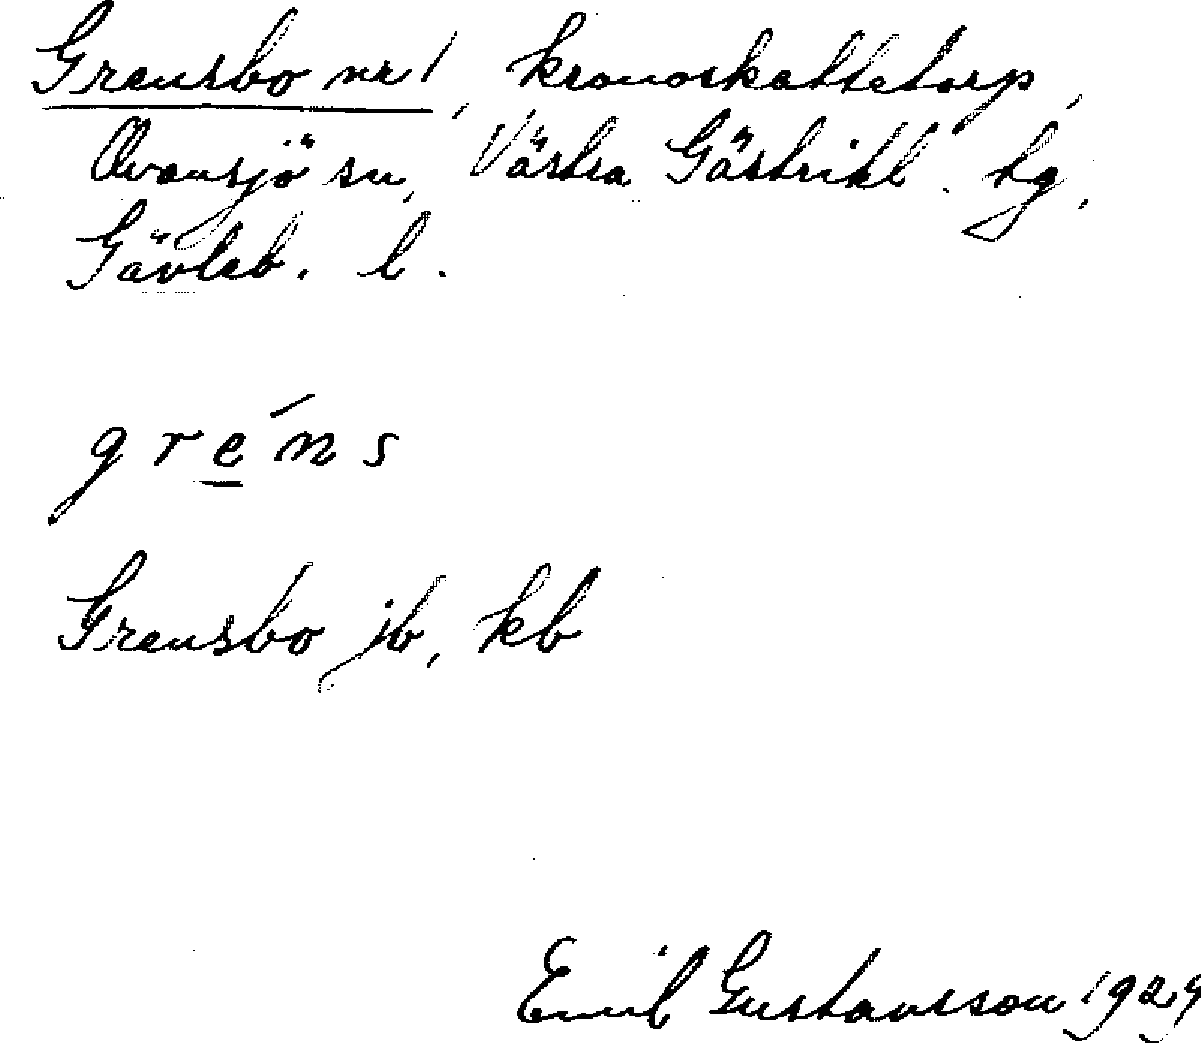 Grensbo nr 1, kronoskattetorp,
Ovansjö sn, Västra Gästrikl. tg,
Gävleb. l.
gré̲ns
Grensbo jb, kb
Emil Gustavsson 1929